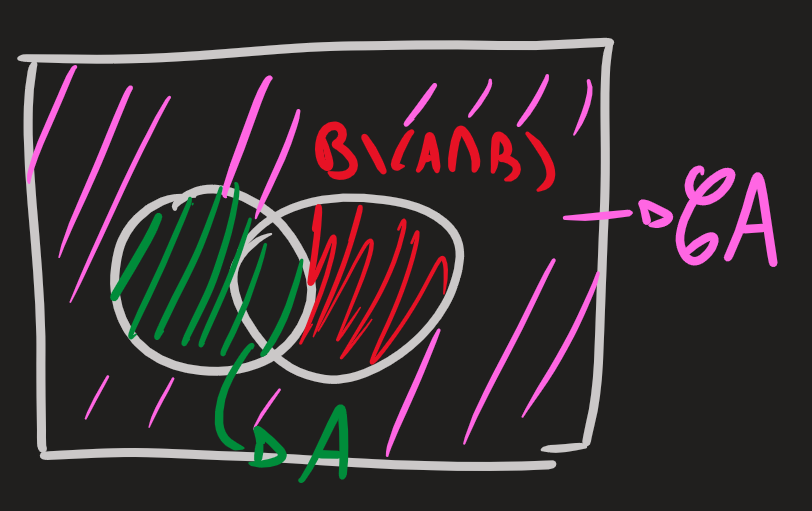 B\(A∩B)
∁A
A